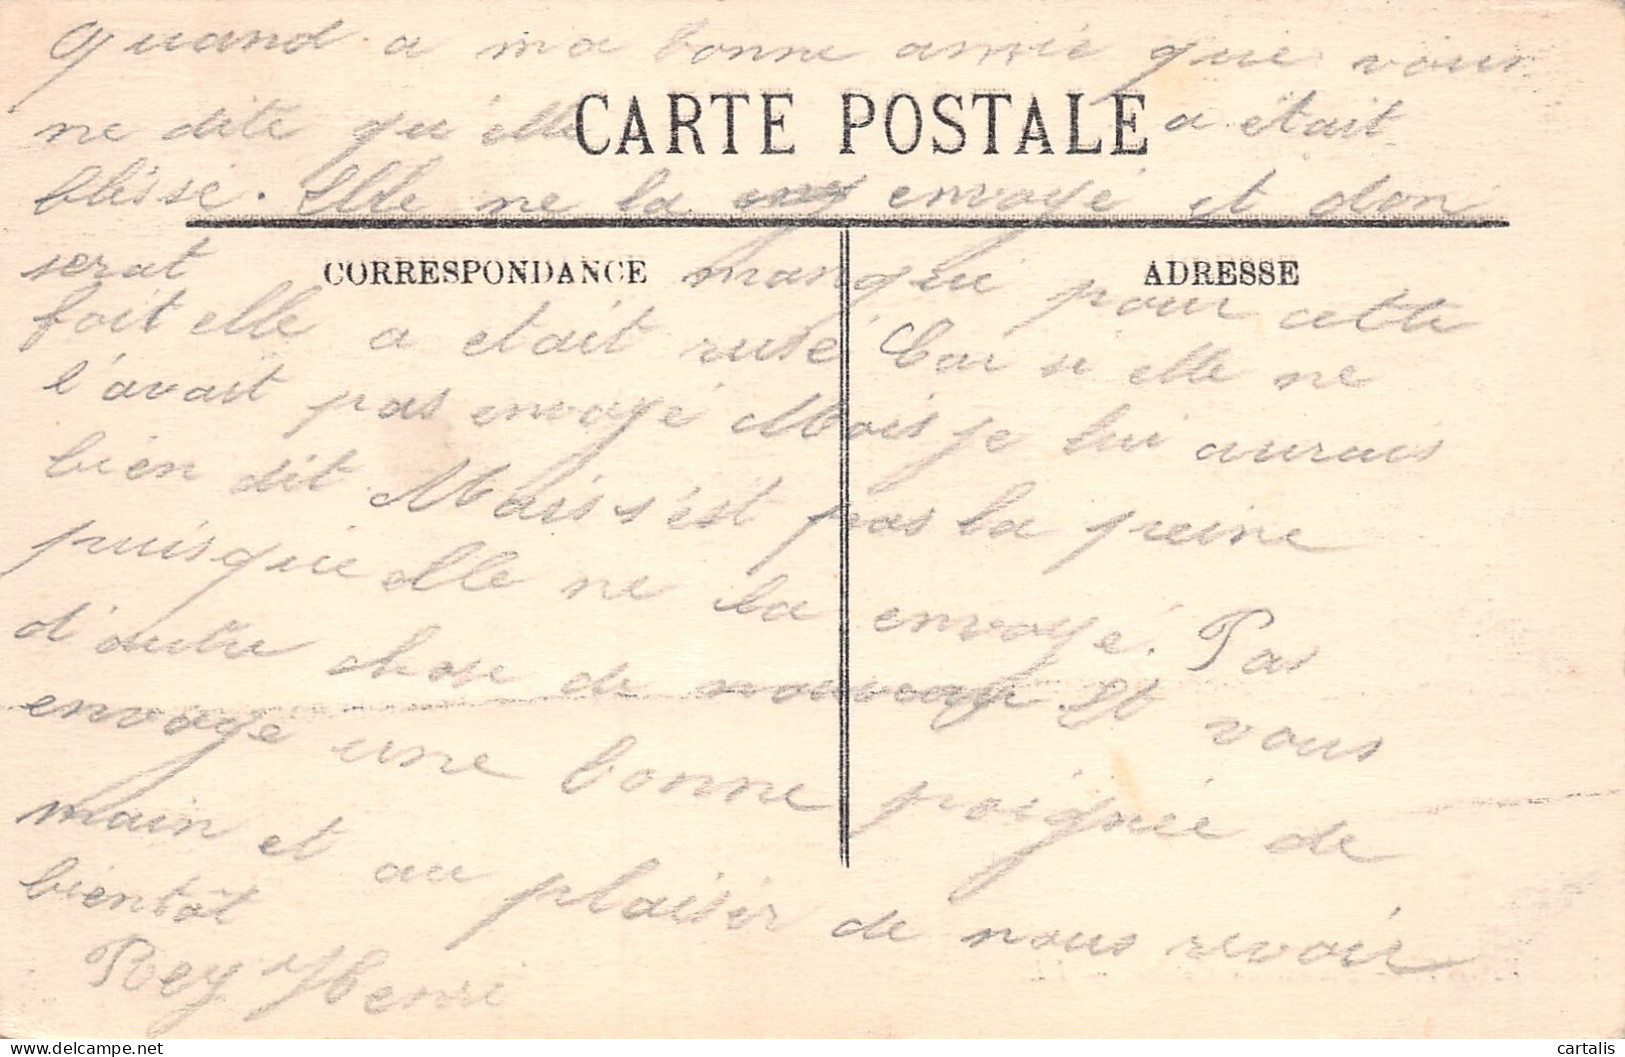 Quand a ma bonne amie que vous
ne dite qu'elle a était
CARTE POSTALE
blessé. Elle ne la envoyé et don
serat manqué pour cette
CORRESPONDANCE
ADRESSE
foit elle a etait rusé Car si elle ne
l'avait pas envoyé Mois je lui aurais
bien dit Mais s'est pas la peine
puisque elle ne la envoyé. Pas
d'autre chose de nouveau Et vous
envoyé une bonne poignée de
main et au plaisir de nous revoir
bientôt
Rey Henri
cartalis